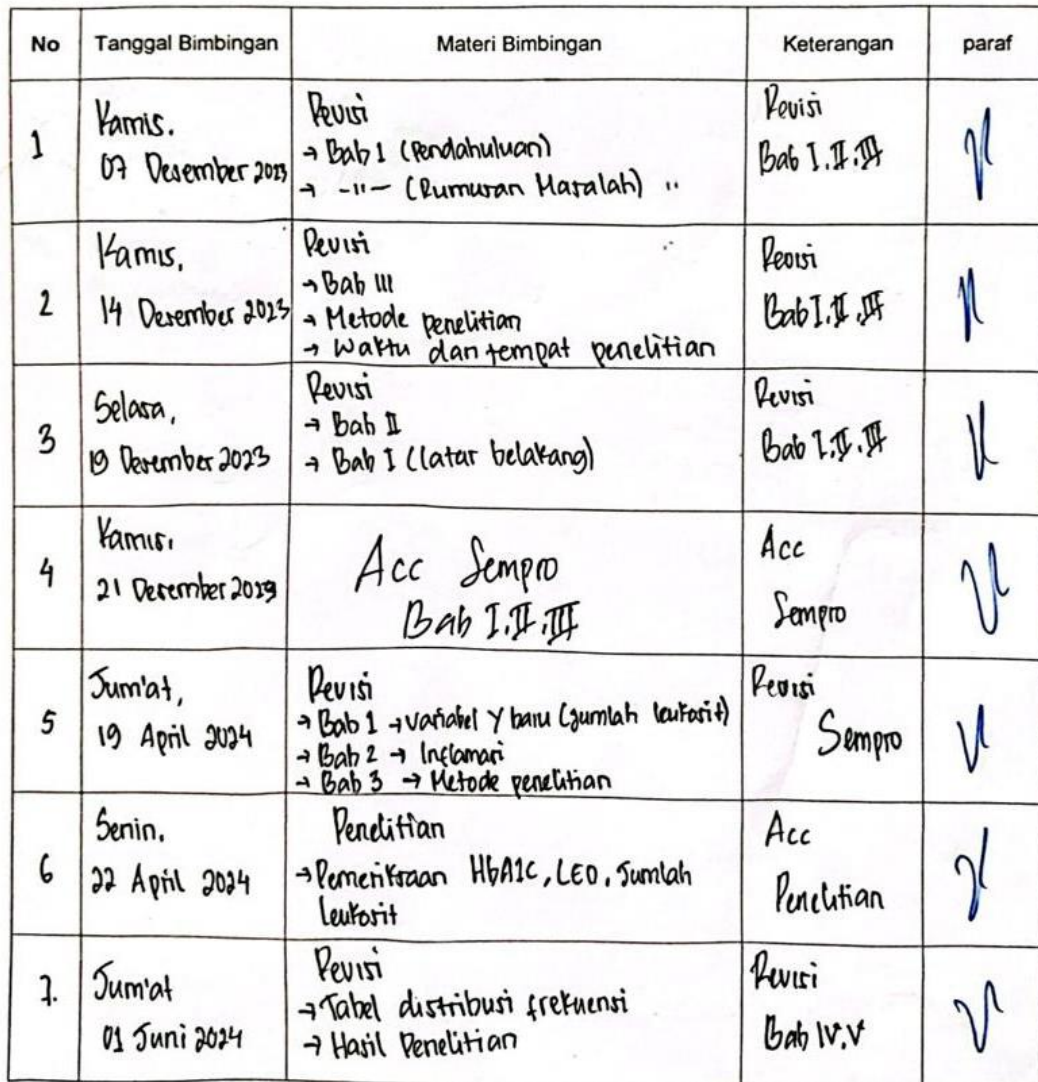 No Tanggal Bimbingan Materi Bimbingan Keterangan paraf
1
Kamis.
07 Desember 2023
Revisi
→ Bab 1 (Pendahuluan)
→ -"- (Rumusan Masalah) "
Revisi
Bab I.II.III
2
Kamis,
14 Desember 2023
Revisi
→ Bab III
→ Metode penelitian
→ Waktu dan tempat penelitian
Revisi
Bab I.II.III
3
Selasa,
19 Desember 2023
Revisi
→ Bab II
→ Bab I (latar belakang)
Revisi
Bab I.II.III
4
Kamis,
21 Desember 2023
Acc Sempro
Bab I.II.III
Acc
Sempro
5
Jum'at,
19 April 2024
Revisi
→ Bab 1 → variabel Y baru (Jumlah leukosit)
→ Bab 2 → Inflamasi
→ Bab 3 → Metode penelitian
Revisi
Sempro
6
Senin,
22 April 2024
Penelitian
→ Pemeriksaan HbA1C, LED, Jumlah
leukosit
Acc
Penelitian
7.
Jum'at
01 Juni 2024
Revisi
→ Tabel distribusi frekuensi
→ Hasil Penelitian
Revisi
Bab IV.V